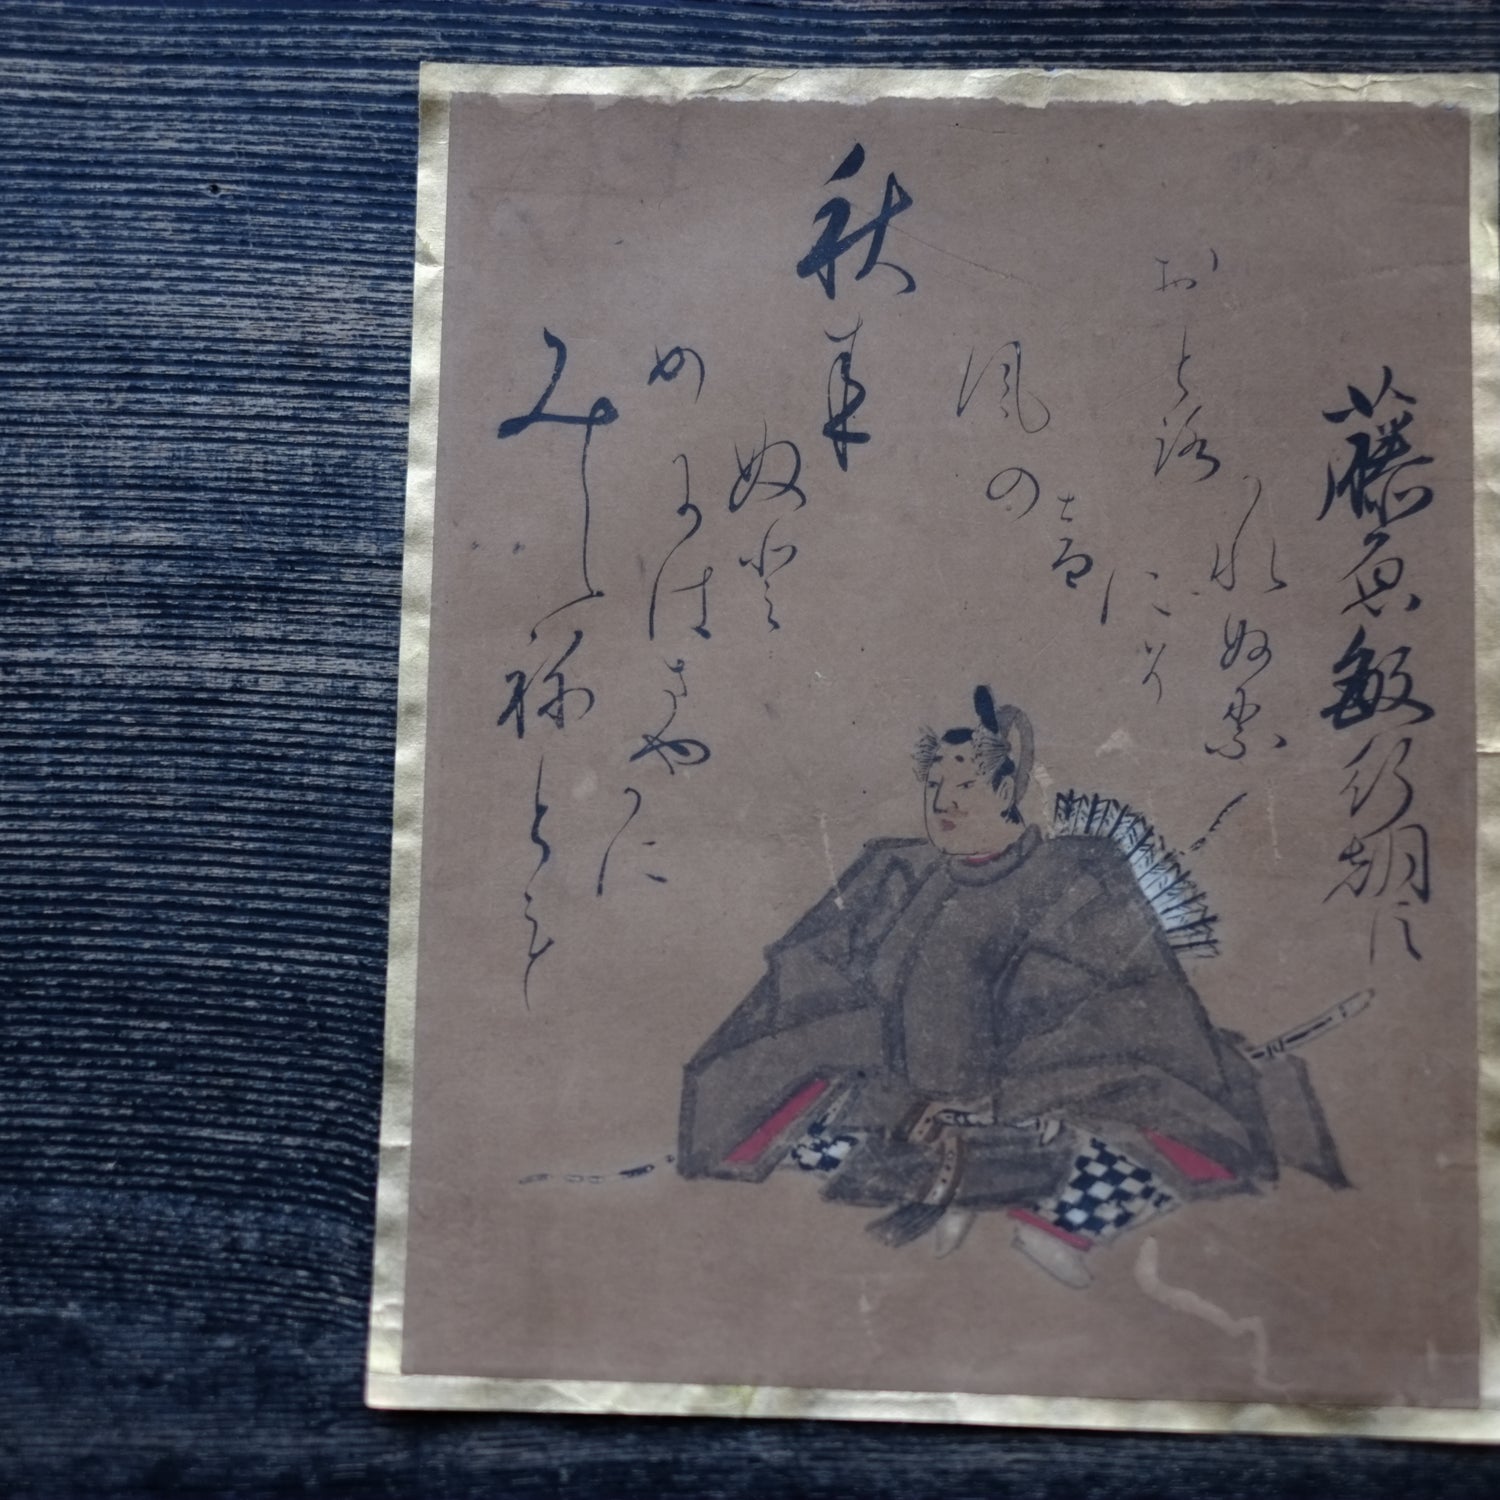 藤原敏行朝臣
秋来
ぬと
めには
さやかに
みえねとも
風の
音にそ
おとろ
かれぬる